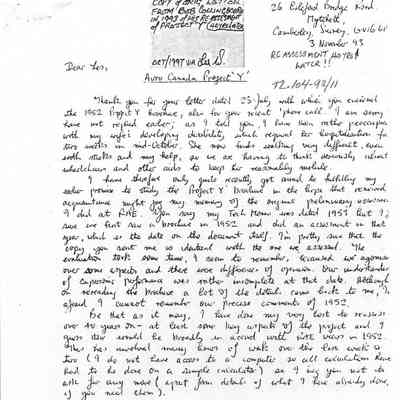 COPY OF
FROM BOB
IN 1993
OF PROJECT Y
OCT/1997 VIA Les S.
Avro Canada Project 'Y'
26 Bridge Road,
Mytchett,
Camberley, Surrey, GU16 6
3 November 93
RE ASSESSMENT
WATER!!
TZ.104-93/11
Dear Les,
Thank you for your letter dated 23 July with which you enclosed
the 1952 Project Y brochure, also for your recent 'phone call. I am sorry
have not replied earlier; as I told you, I have been rather preoccupied
with my wife's developing disability, which required her hospitalisation for
two weeks in mid-October. She now finds walking very difficult, even
with sticks and my help, so we are having to think seriously about
wheelchairs and other aids to keep her reasonably mobile.
I have therefore only quite recently got around to fulfilling my
earlier promise to study the Project Y brochure in the hope that renewed
acquaintance might jog my memory of the original preliminary assessment
I did at RAE. You say my Tech Memo was dated 1953 but I'm
sure we first saw a brochure in 1952 and did an assessment in that
year, which is the date on the document itself. I'm pretty sure that the
copy you sent me is identical with the one we assessed. The
evaluation took some time, I seem to remember, because we agonised
over some aspects and there were differences of opinion. Our understanding
of supersonic performance was rather incomplete at that date. Although
on rereading the brochure a lot of the details came back to me, I'm
afraid I cannot remember our precise comments of 1952.
Be that as it may, I have done my very best to reassess
over 40 years on - at least some key aspects of the project and I
guess these would be broadly in accord with our views in 1952.
This has involved many hours of work over the last week or
two (I do not have access to a computer so all calculations have
had to be done on a simple calculator) so I beg you not to
ask for any more (apart from details of what I have already done,
if you need them).